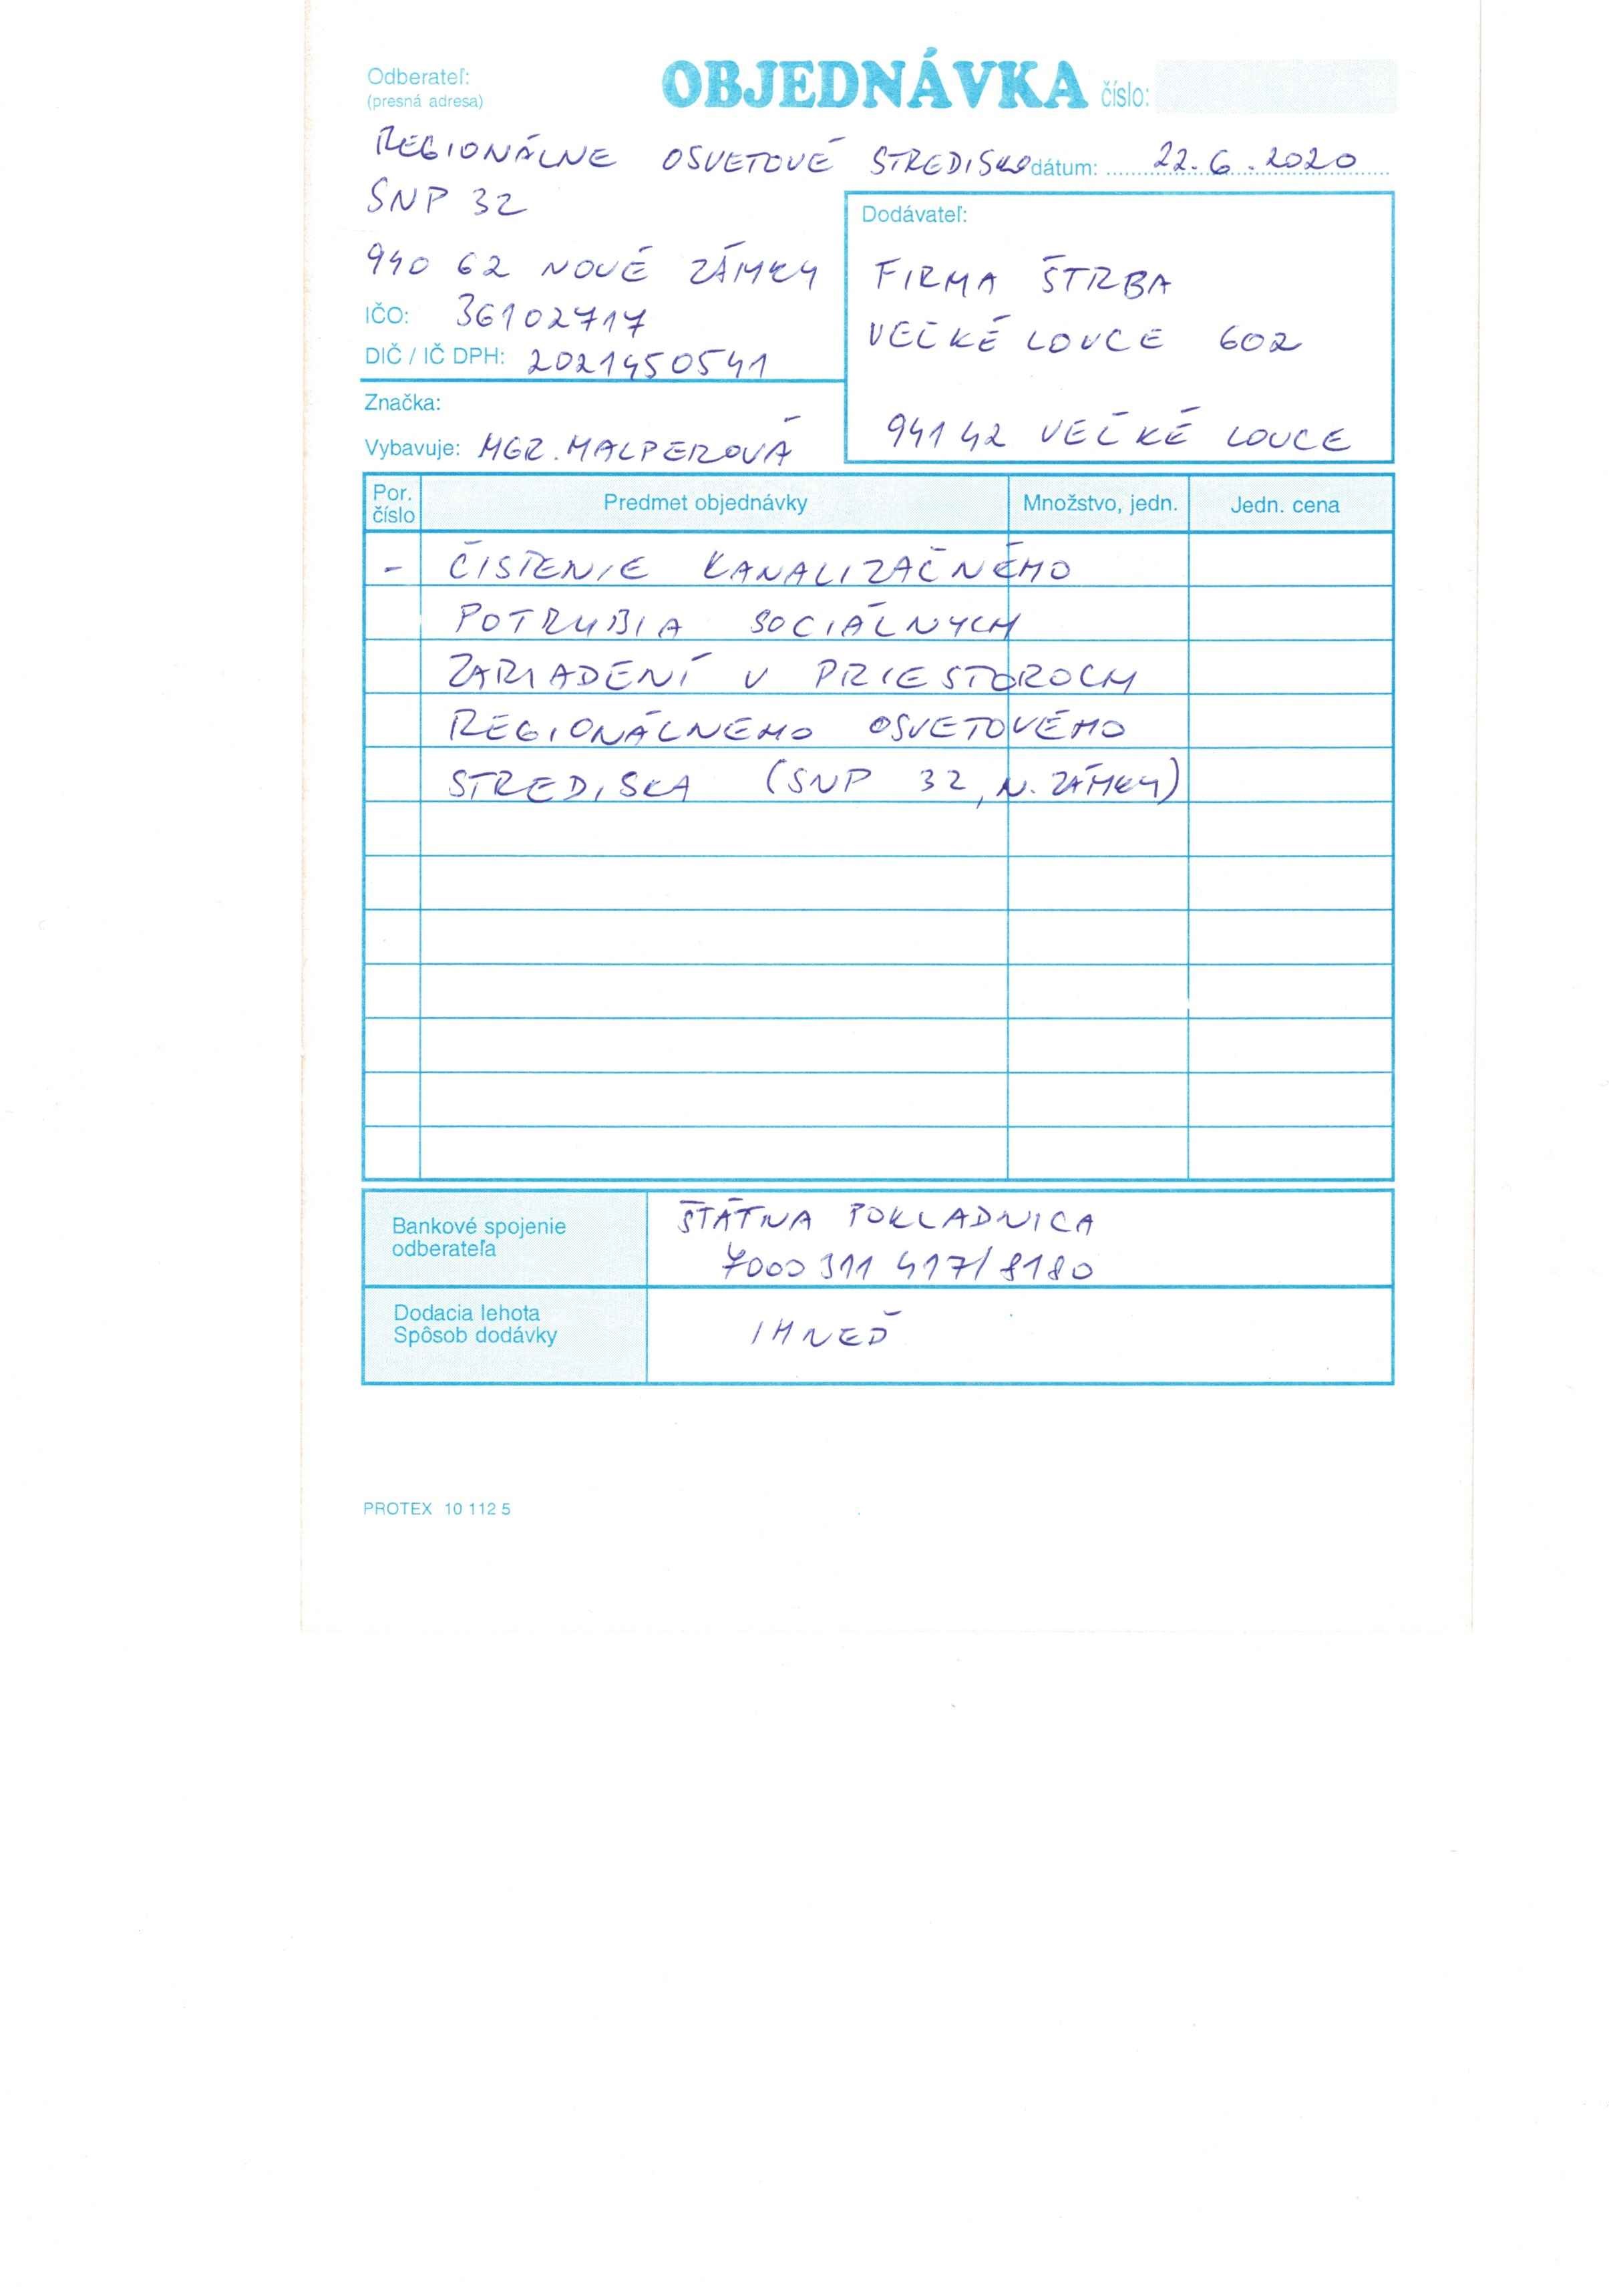 Odberateľ:
(presná adresa)
OBJEDNÁVKA číslo:
REGIONÁLNE OSVETOVÉ STREDISKO dátum: 22.6.2020
SNP 32
940 62 NOVÉ ZÁMKY
IČO: 36102717
DIČ / IČ DPH: 2021450541
Značka:
Vybavuje: MGR. MALPEROVÁ
Dodávateľ:
FIRMA ŠTRBA
VEĽKÉ LOVCE 602
941 42 VEĽKÉ LOVCE
Por. číslo Predmet objednávky Množstvo, jedn. Jedn. cena
- ČISTENIE KANALIZAČNÉHO
POTRUBIA SOCIÁLNYCH
ZARIADENÍ V PRIESTOROCH
REGIONÁLNEHO OSVETOVÉHO
STREDISKA (SNP 32, N. ZÁMKY)
Bankové spojenie
odberateľa
ŠTÁTNA POKLADNICA
7000 311 417/8180
Dodacia lehota
Spôsob dodávky
IHNEĎ
PROTEX 10 112 5